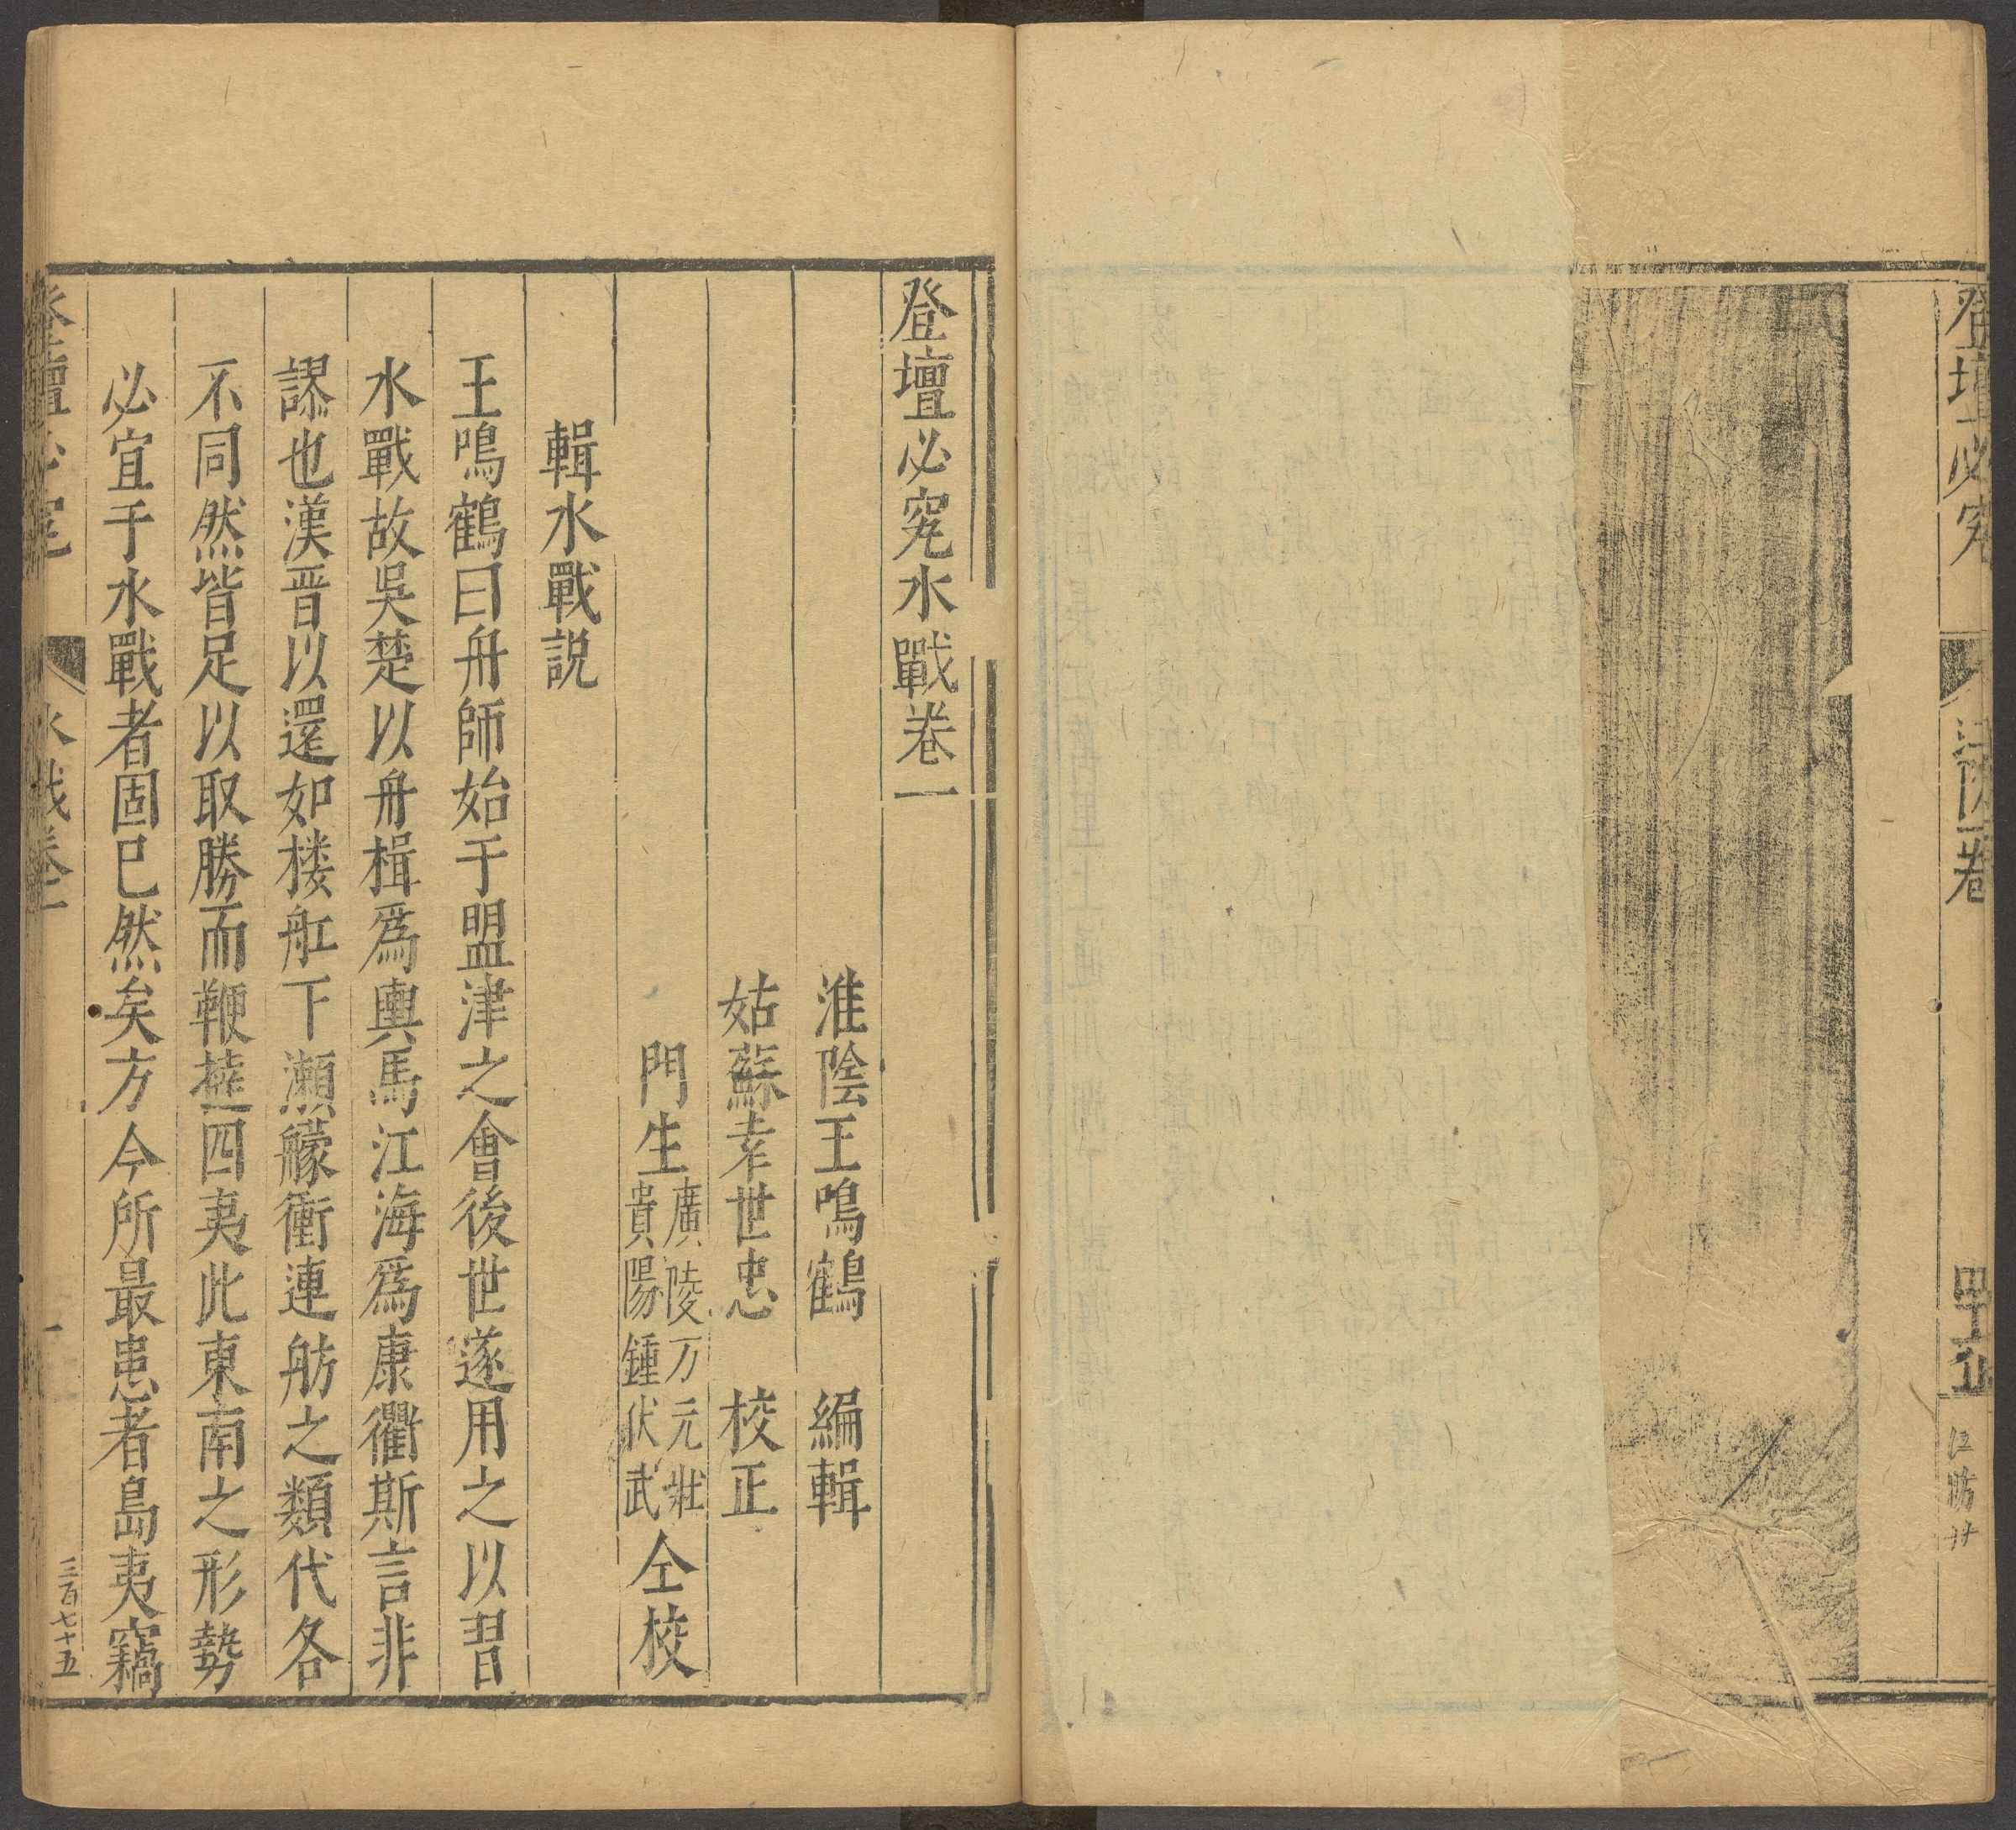 登壇必究
江防二卷
四十五
登壇必究水戰卷一
淮陰王鳴鶴　編輯
姑蘇李世忠　校正
門生廣陵万元壯
貴陽鍾伏武仝校
輯水戰説
王鳴鶴曰舟師始于盟津之會後世遂用之以習
水戰故吳楚以舟楫爲輿馬江海爲康衢斯言非
謬也漢晋以還如楼舡下瀬艨衝連舫之類代各
不同然皆足以取勝而鞭撻四夷此東南之形勢
必宜于水戰者固已然矣方今所最患者島夷竊
登壇必究
水戰卷一
一
三百七十五